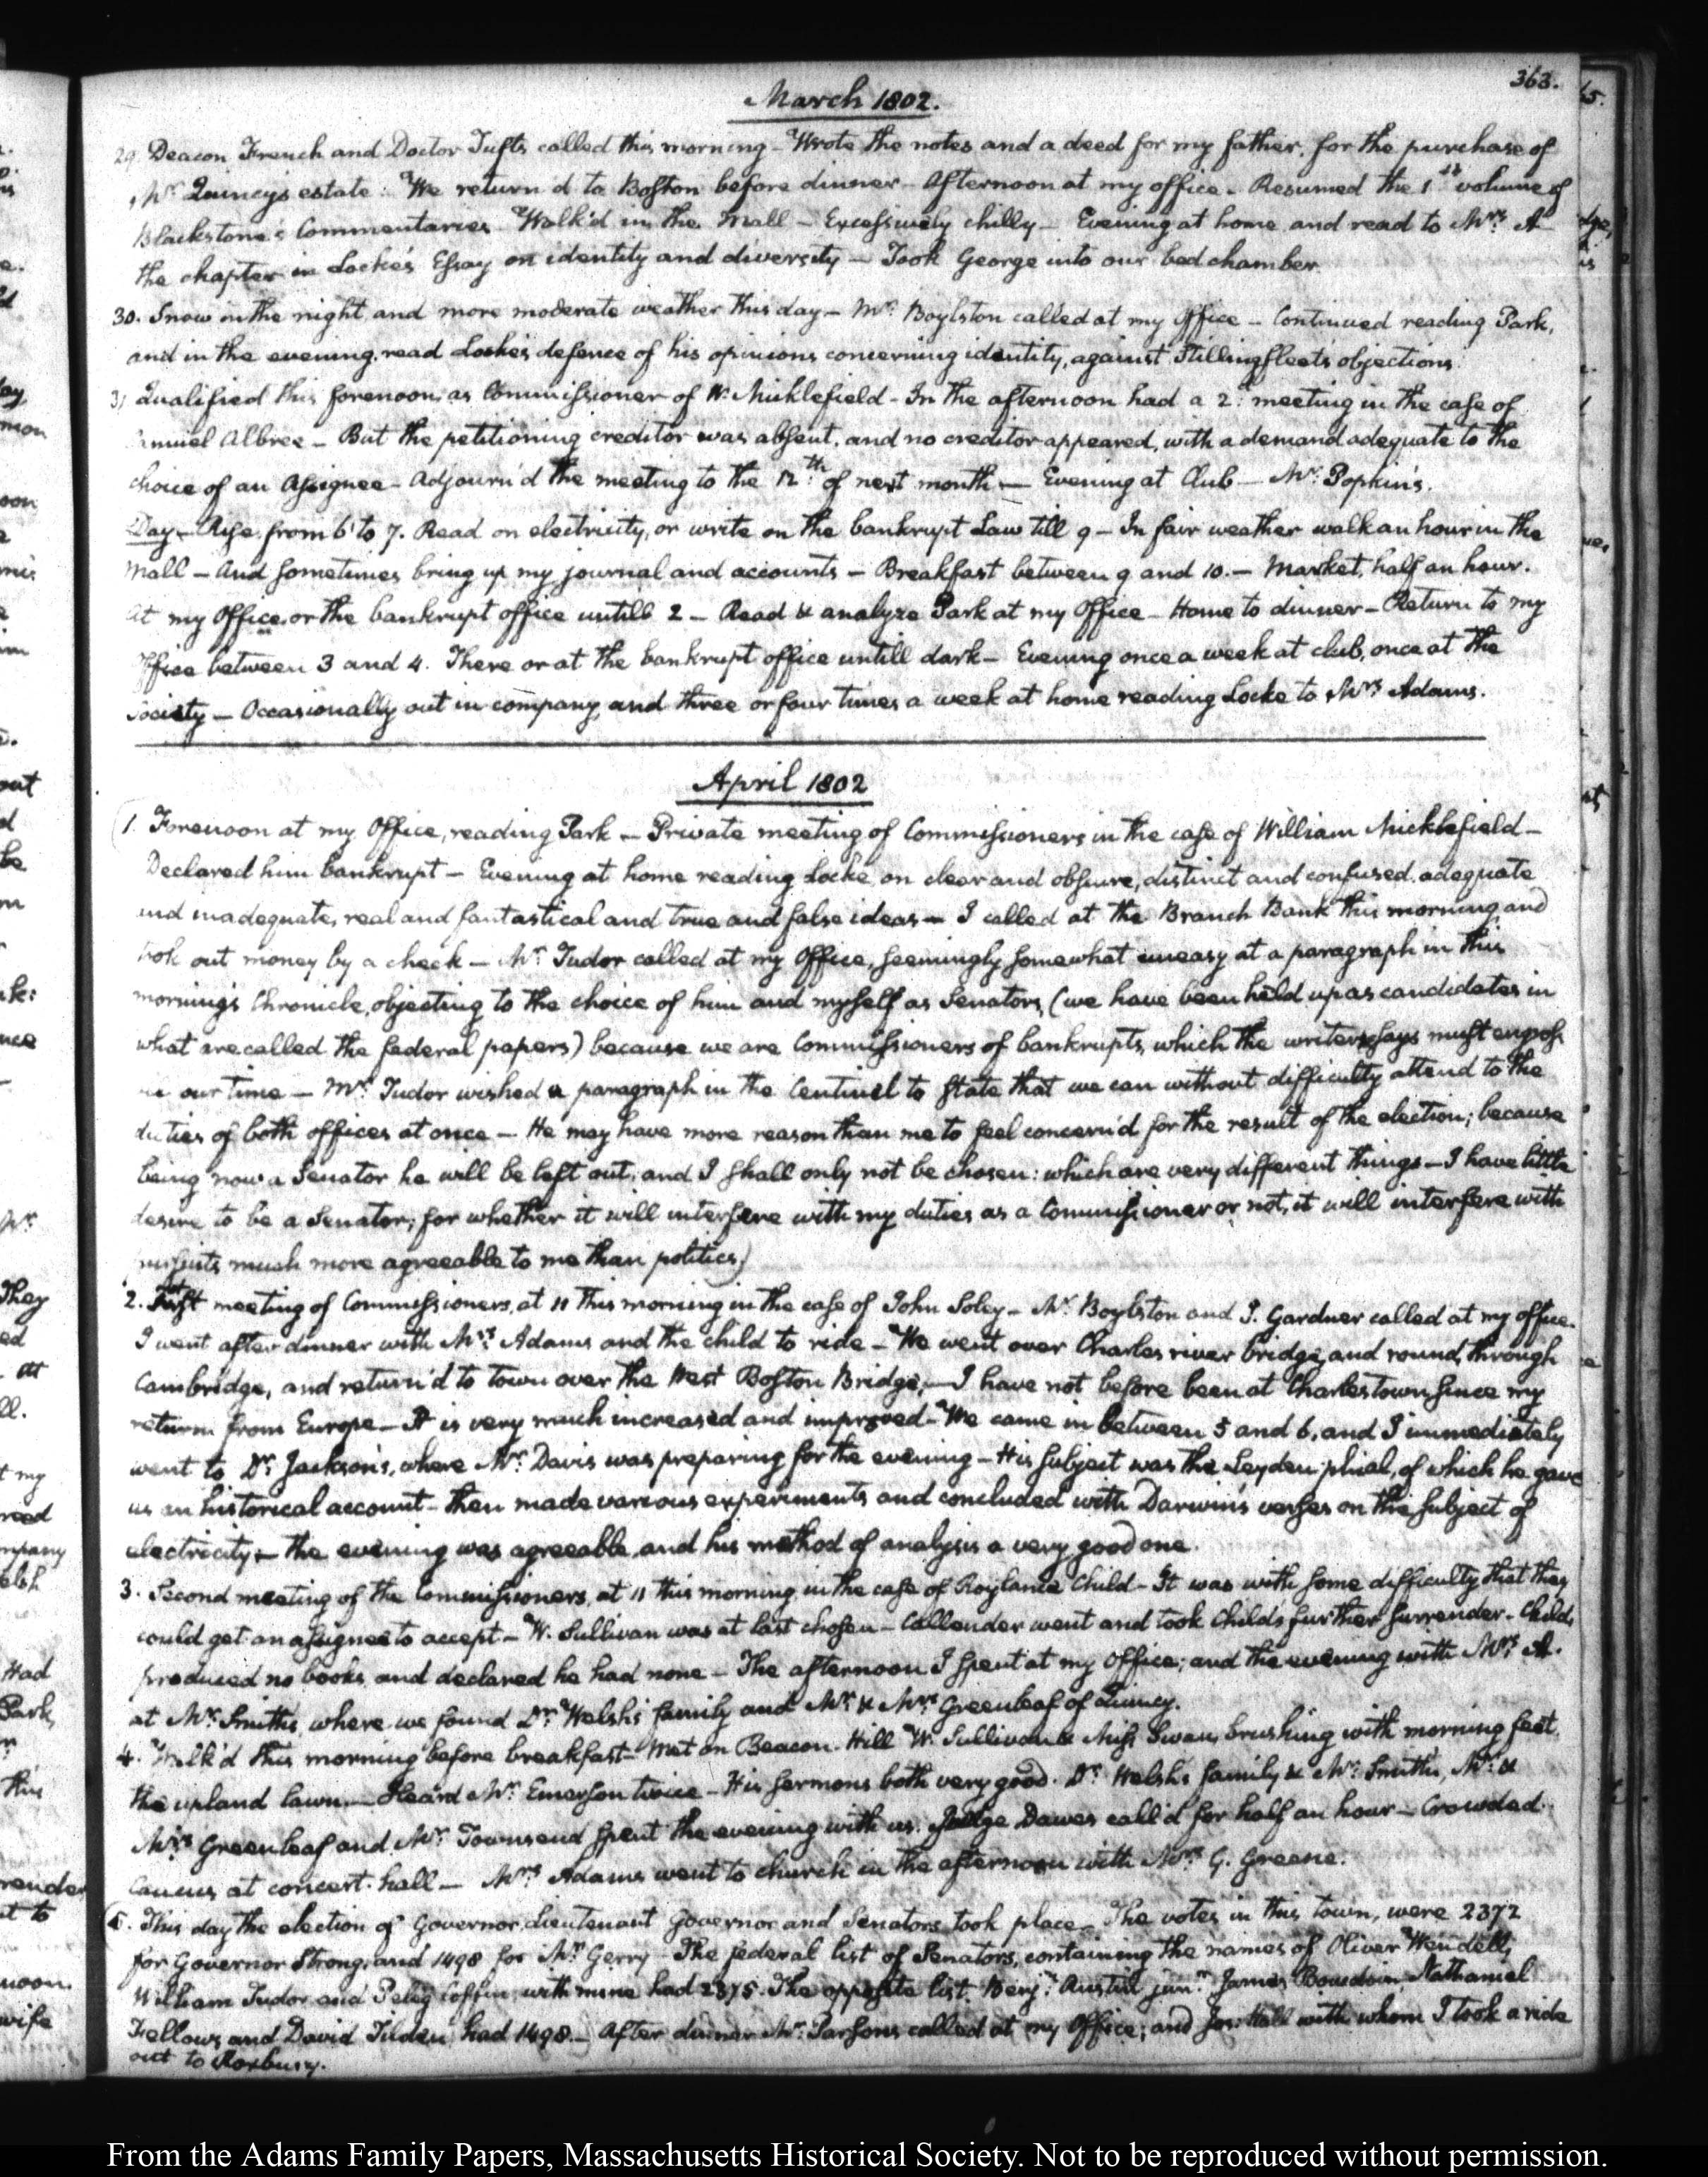 363.
March 1802.
29. Deacon French and Doctor Tufts called this morning - Wrote the notes and a deed for my father, for the purchase of
Mr. Quincy's estate. We return'd to Boston before dinner - Afternoon at my office - Resumed the 1st volume of
Blackstone's Commentaries. Walk'd in the Mall - Excessively chilly - Evening at home and read to Mrs. A
the chapter in Locke's Essay on identity and diversity - Took George into our bed chamber.
30. Snow in the night, and more moderate weather this day - Mr. Boylston called at my Office - Continued reading Park,
and in the evening, read Locke's defence of his opinions concerning identity, against Stillingfleet's objections.
31 Qualified this forenoon, as Commissioner of W. Micklefield - In the afternoon had a 2d. meeting in the case of
Samuel Albree - But the petitioning creditor was absent, and no creditor appeared, with a demand adequate to the
choice of an Assignee - Adjourn'd the meeting to the 12th. of next month - Evening at Club - Mr. Popkin's.
Day - Rise from 6 to 7. Read on electricity, or write on the bankrupt Law till 9 - In fair weather walk an hour in the
Mall - And sometimes bring up my journal and accounts - Breakfast between 9 and 10. - Market, half an hour.
At my Office, or the bankrupt office untill 2 - Read & analyze Park at my Office - Home to dinner - Return to my
Office between 3 and 4. There or at the bankrupt office untill dark - Evening once a week at club, once at the
Society - Occasionally out in company, and three or four times a week at home reading Locke to Mrs Adams.
April 1802
1. Forenoon at my Office, reading Park - Private meeting of Commissioners in the case of William Micklefield -
Declared him bankrupt - Evening at home reading Locke, on clear and obscure, distinct and confused, adequate
and inadequate, real and fantastical and true and false ideas - I called at the Branch Bank this morning and
took out money by a check - Mr. Tudor called at my Office, seemingly somewhat uneasy at a paragraph in this
morning's Chronicle, objecting to the choice of him and myself as Senators, (we have been held up as candidates in
what are called the federal papers) because we are Commissioners of bankrupts, which the writer says must engross
our time - Mr. Tudor wished a paragraph in the Centinel to state that we can without difficulty attend to the
duties of both offices at once - He may have more reason than me to feel concern'd for the result of the election; because
being now a Senator he will be left out, and I shall only not be chosen: which are very different things - I have little
desire to be a Senator; for whether it will interfere with my duties as a Commissioner or not, it will interfere with
pursuits much more agreeable to me than politics)
2. First meeting of Commissioners, at 11 this morning in the case of John Soley - Mr. Boylston and J. Gardner called at my office.
I went after dinner with Mrs. Adams and the child to ride - We went over Charles river bridge, and round, through
Cambridge, and return'd to town over the West Boston Bridge, - I have not before been at Charlestown since my
return from Europe - It is very much increased and improved - We came in between 5 and 6, and I immediately
went to Dr. Jackson's, where Mr. Davis was preparing for the evening - His subject was the Leyden phial, of which he gave
us an historical account - then made various experiments and concluded with Darwin's verses on the subject of
electricity - the evening was agreeable, and his method of analysis a very good one.
3. Second meeting of the Commissioners, at 11 this morning, in the case of Roylance Child - It was with some difficulty that they
could get an assignee to accept - W. Sullivan was at last chosen - Callender went and took Child's further surrender - Child,
produced no books, and declared he had none - The afternoon I spent at my Office; and the evening with Mrs. A.
at Mr. Smith's, where we found Dr. Welsh's family and Mr. & Mrs. Greenleaf of Quincy.
4. Walk'd this morning before breakfast - Met on Beacon Hill W. Sullivan & Miss Swan, brushing with morning feet,
the upland lawn. - Heard Mr. Emerson twice - His sermons both very good. Dr. Welsh's family & Mr. Smith's, Mr. &
Mrs. Greenleaf and Mr. Townsend spent the evening with us. Judge Dawes call'd for half an hour - Crowded
Caucus at concert-hall - Mrs. Adams went to church in the afternoon with Mrs. G. Greene.
5. This day the election of Governor, Lieutenant Governor and Senators took place - The votes in this town, were 2372
for Governor Strong, and 1498 for Mr. Gerry - The federal list of Senators, containing the names of Oliver Wendell,
William Tudor and Peleg Coffin, with mine had 2375. The opposite list, Benj: Austin junr. James Bowdoin, Nathaniel
Fellows, and David Tilden, had 1498. - After dinner Mr. Parsons called at my Office; and Jos: Hall with whom I took a ride
out to Roxbury.
From the Adams Family Papers, Massachusetts Historical Society. Not to be reproduced without permission.